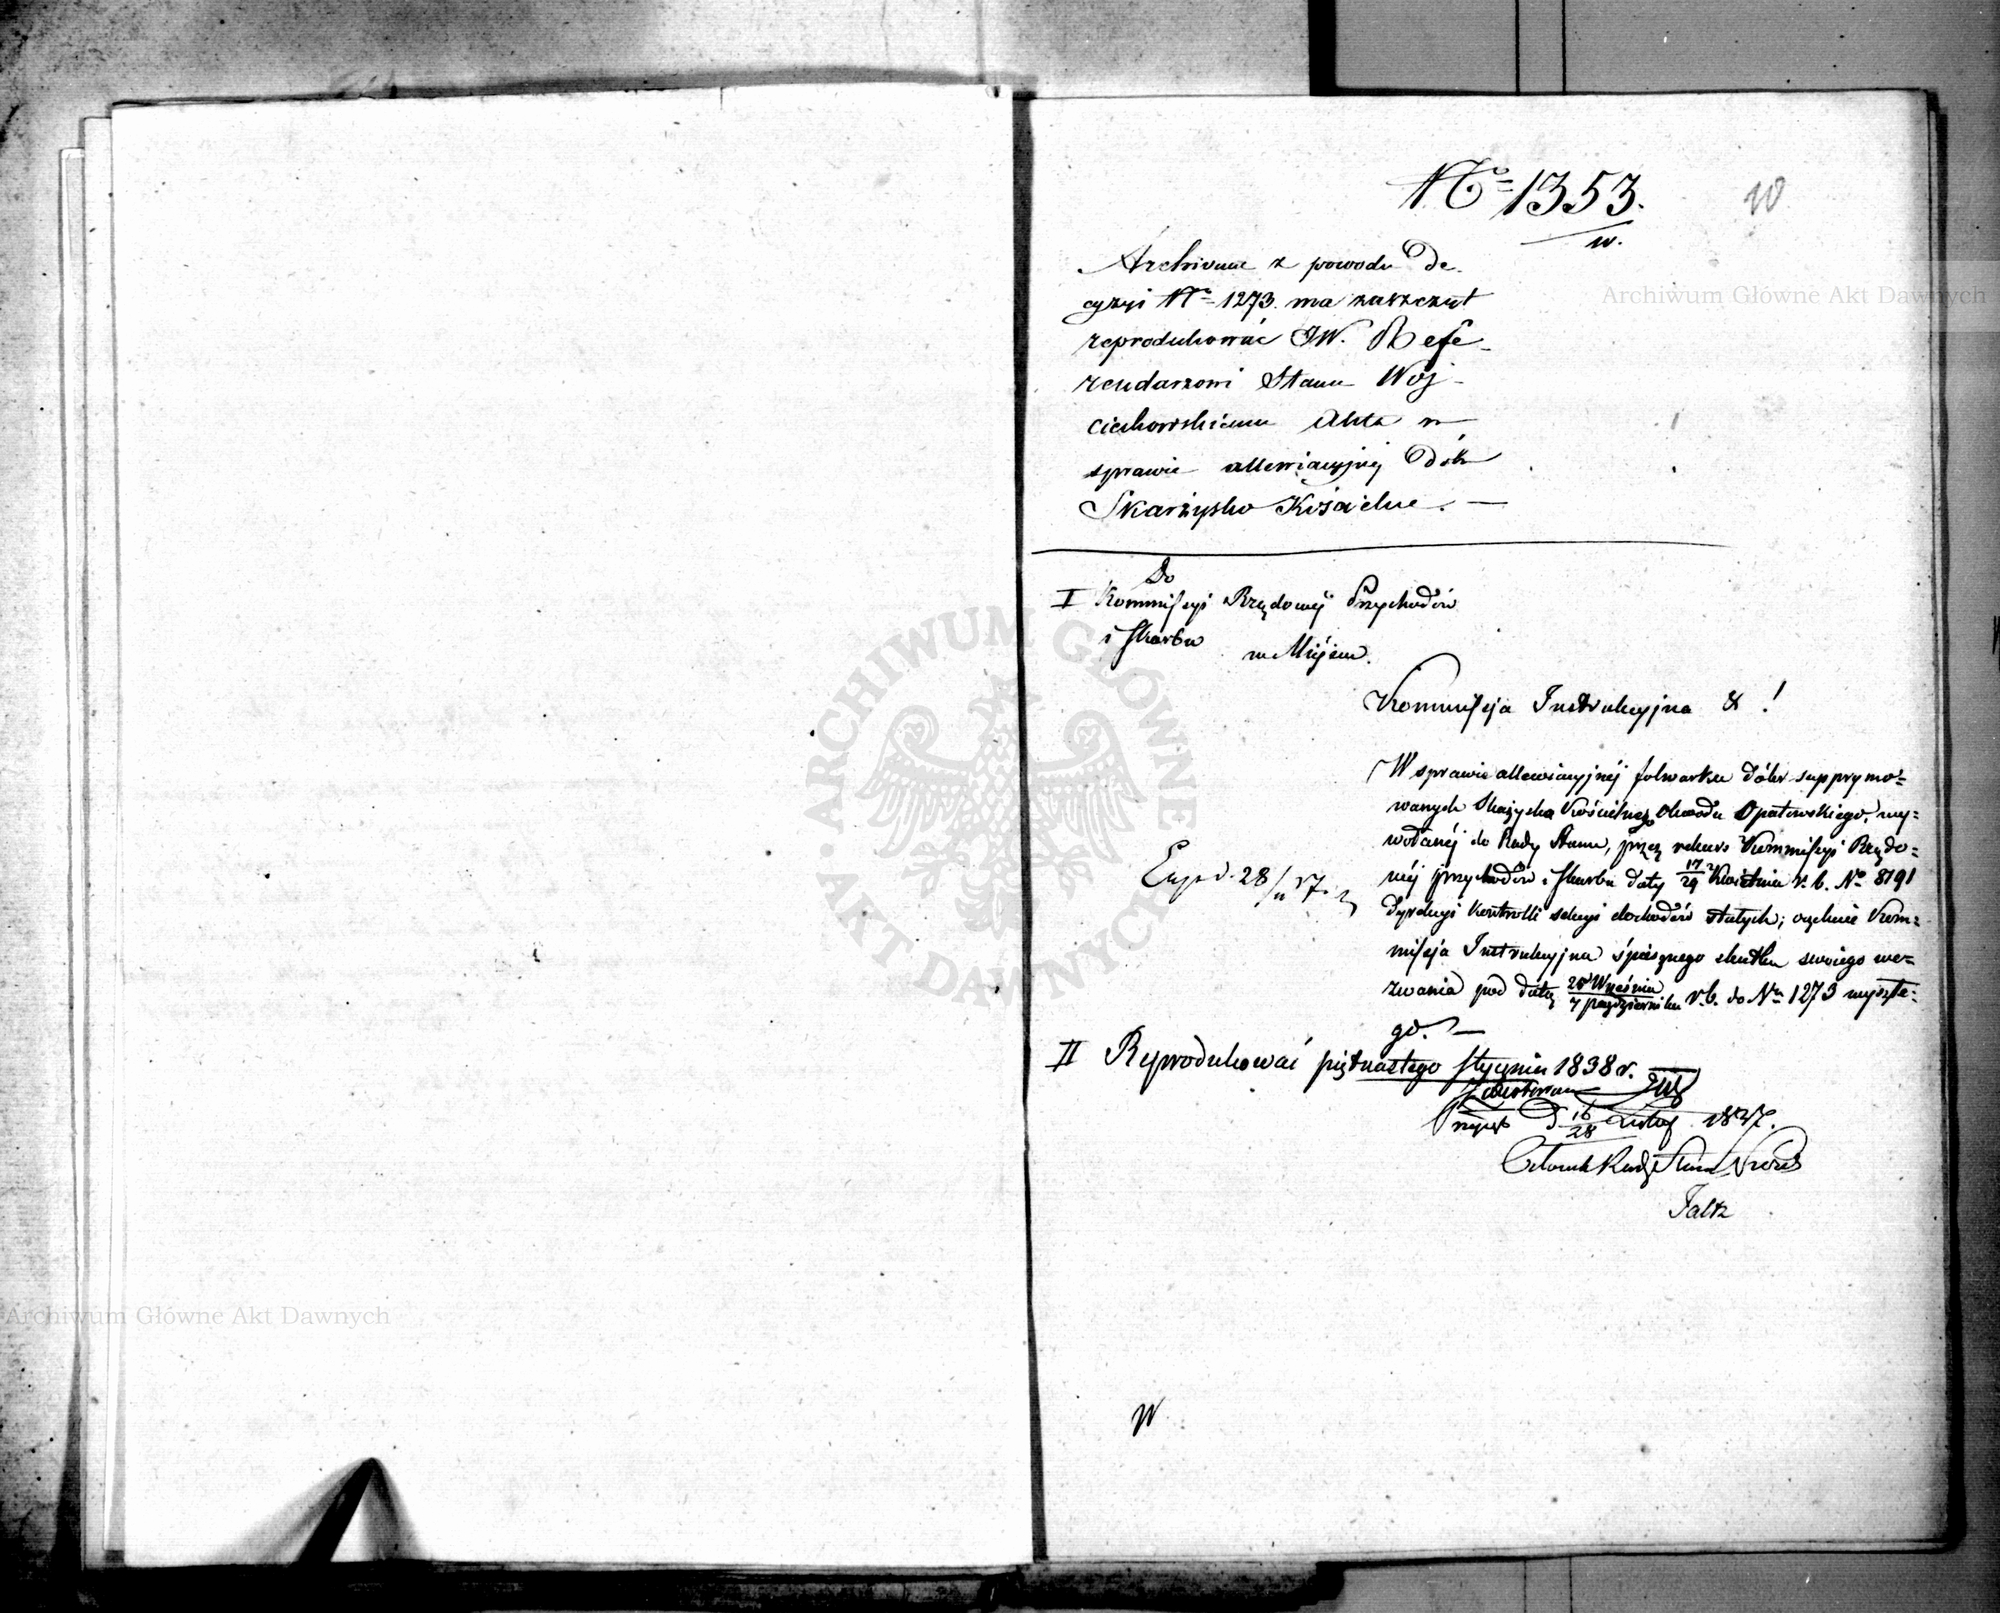 No 1353.
w.
Archiwum z powodu De-
cyzyi No 1273. ma zaszczyt
reprodukować JW. Refe-
rendarzowi Stanu Woj-
ciechowskiemu Akta w
sprawie allewiacyjnej Dóbr
Skarżysko Kościelne. —
Do
I Kommissyi Rządowej Przychodów
i Skarbu
w Miejscu.
Kommissyja Instrukcyjna & !
W sprawie allewiacyjnéj folwarku dóbr supprymo-
wanych Skarżyska Kościelnego Obwodu Opatowskiego, wy-
wołanéj do Rady Stanu, przez rekurs Kommissyi Rządo-
wéj przychodów i Skarbu daty 17/29 Kwietnia r. b. No 8191
Dyrekcyi Kontrolli sekcyi dochodów stałych; oczekuje Kom-
Exped. 28/11 37.
missyja Instrukcyjna śpiesznego skutku swoiego we-
zwania pod datą 25 Września/7 października r. b. do Nru 1273 wyszłe-
go. —
II Reprodukować piętnastego stycznia 1838 r.
d 16/28 Listop. 1837.
Członek Rady Stanu
Faltz
W
ARCHIWUM GŁÓWNE AKT DAWNYCH
Archiwum Główne Akt Dawnych
Archiwum Główne Akt Dawnych